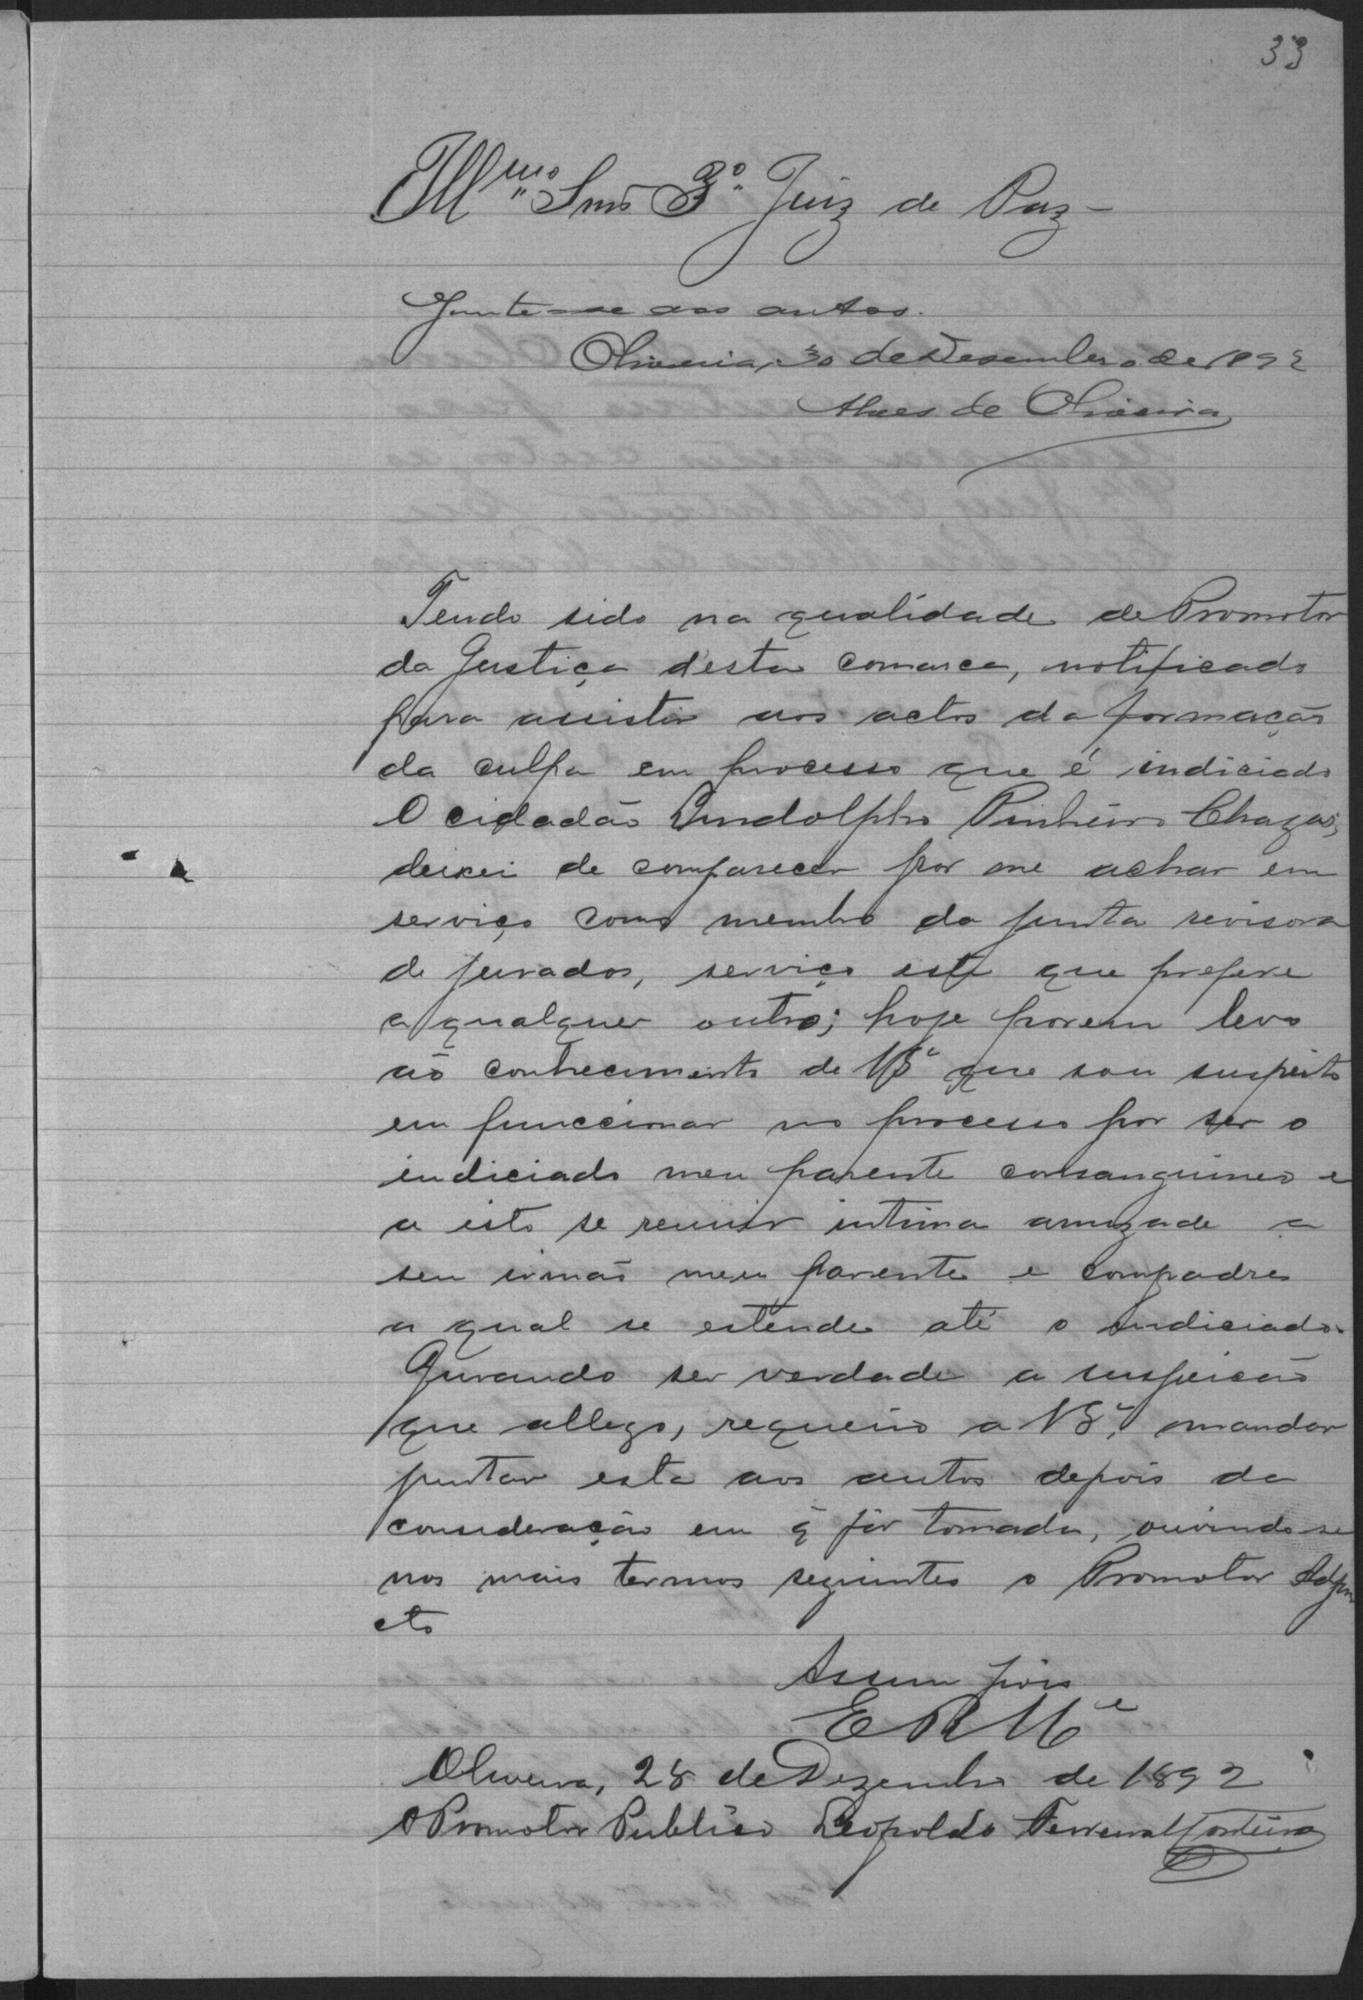 33
Ill.mo Snr 3º Juiz de Paz
Junte-se aos autos.
Oliveira, 30 de Desembro de 1892
Alves de Oliveira
Tendo sido na qualidade de Promotor
da Justiça d'esta comarca, notificado
para assistir aos actos da formação
da culpa em processo que é indiciado
O cidadão Lindolpho Pinheiro Chagas,
deixei de comparecer por me achar em
serviço como membro da junta revisora
de jurados, serviço este que prefere
a qualquer outro; hoje porem levo
ao conhecimento de VSª que sou suspeito
em funccionar no processo por ser o
indiciado meu parente consanguineo e
a isto se reunir intima amizade a
seu irmão meu parente e compadre
a qual se estende até o indiciado.
Jurando ser verdade a suspeição
que allego, requeiro a VSª, mandar
juntar esta aos autos depois da
consideração em q̃ fôr tomada, ouvindo-se
nos mais termos seguintes o Promotor Adjun
cto
Assim pois
E R Mce
Oliveira, 28 de Dezembro de 1892
O Promotor Publico Leopoldo Ferreira